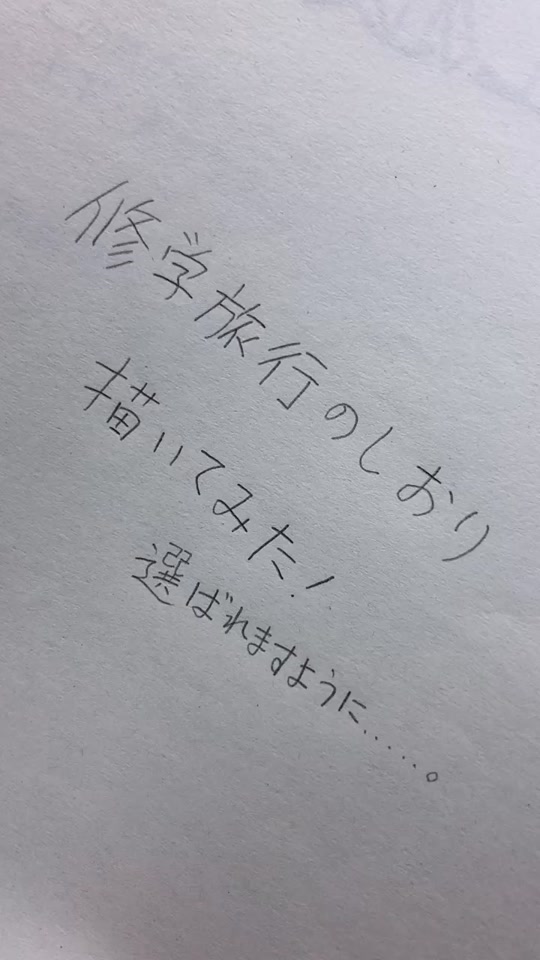 修学旅行のしおり
描いてみた!
選ばれますように……。